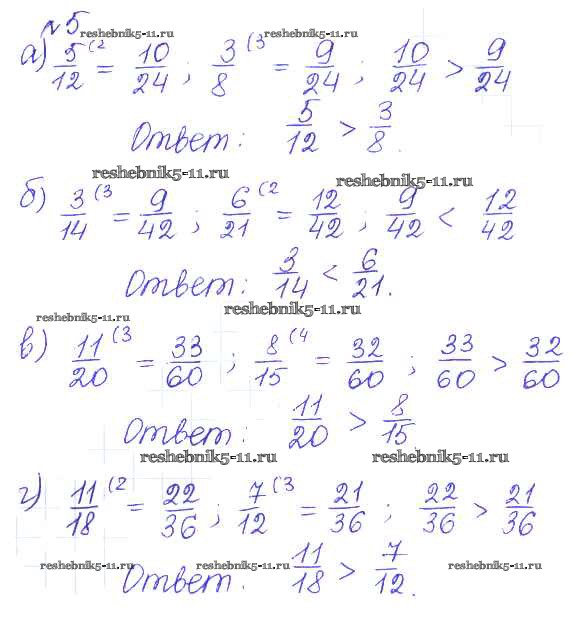 №5 reshebnik5-11.ru
а) 5/12 (2 = 10/24 ; 3/8 (3 = 9/24 ; 10/24 > 9/24
Ответ: 5/12 > 3/8.
reshebnik5-11.ru reshebnik5-11.ru
б) 3/14 (3 = 9/42 ; 6/21 (2 = 12/42 ; 9/42 < 12/42
Ответ: 3/14 < 6/21.
reshebnik5-11.ru reshebnik5-11.ru
в) 11/20 (3 = 33/60 ; 8/15 (4 = 32/60 ; 33/60 > 32/60
Ответ: 11/20 > 8/15.
reshebnik5-11.ru reshebnik5-11.ru
г) 11/18 (2 = 22/36 ; 7/12 (3 = 21/36 ; 22/36 > 21/36
Ответ: 11/18 > 7/12.
reshebnik5-11.ru reshebnik5-11.ru